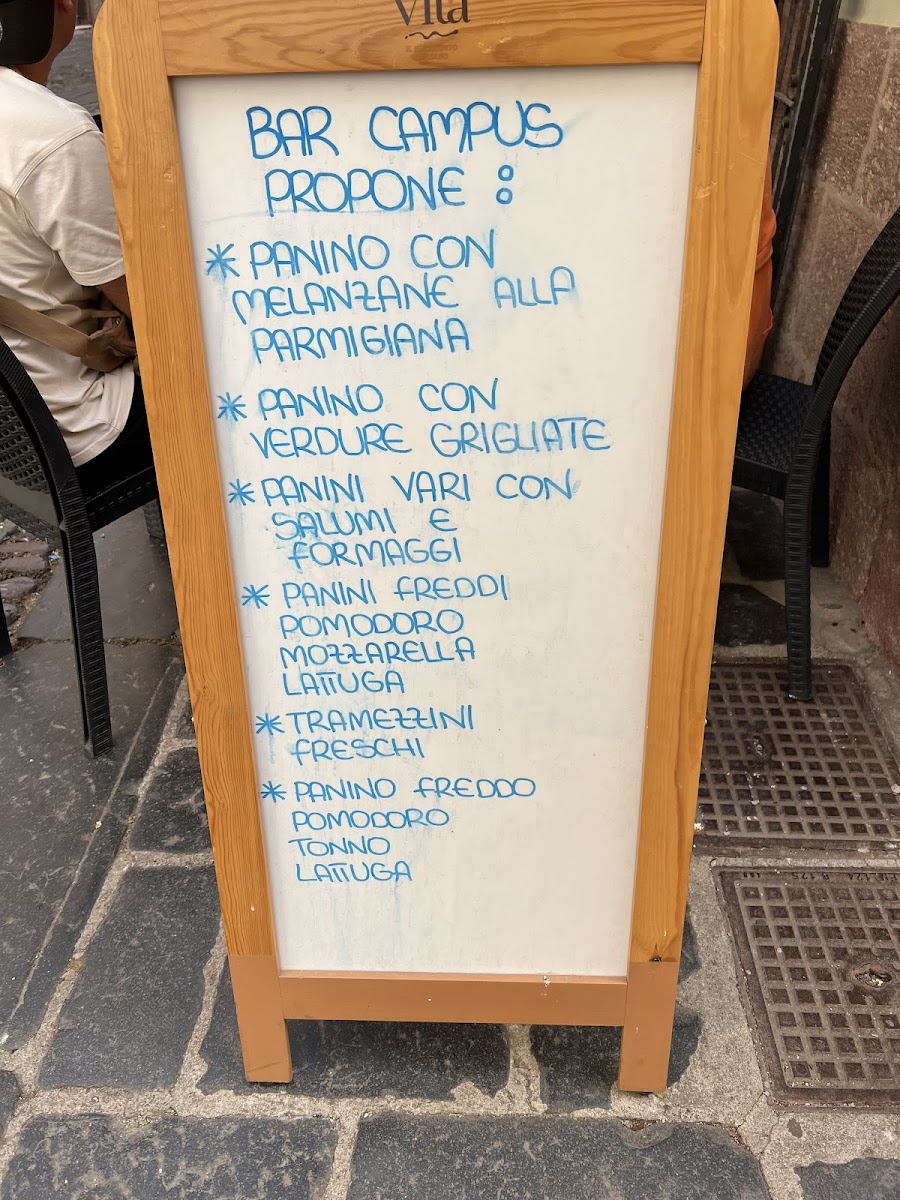 vita
BAR CAMPUS
PROPONE :
* PANINO CON
MELANZANE ALLA
PARMIGIANA
* PANINO CON
VERDURE GRIGLIATE
* PANINI VARI CON
SALUMI E
FORMAGGI
* PANINI FREDDI
POMODORO
MOZZARELLA
LATTUGA
* TRAMEZZINI
FRESCHI
* PANINO FREDDO
POMODORO
TONNO
LATTUGA